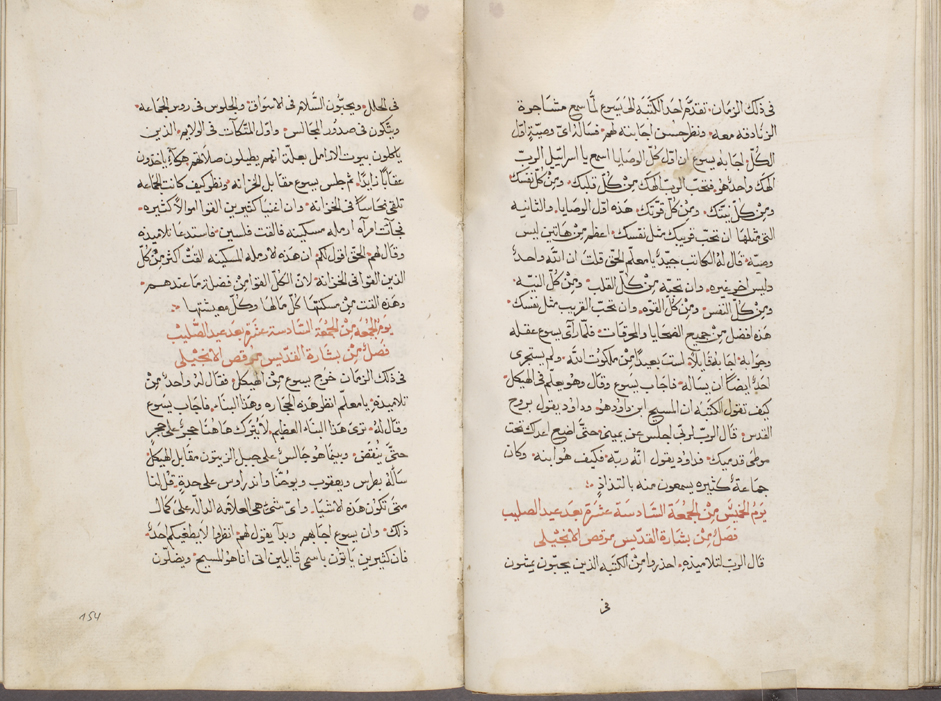 في ذلك الزمان تقدم احد الكتبه الى يسوع لما سمع مشاجرة
الزنادقه معه ونظر حسن اجابته لهم فساله اى وصية اول
الكل اجابه يسوع ان اول كل الوصايا اسمع يا اسراييل الرب
الهك واحد هو فتحب الرب الهك من كل قلبك ومن كل نفسك
ومن كل نيتك ومن كل قوتك هذه اول الوصايا والثانيه
التي مثلها ان تحب قريبك مثل نفسك اعظم من هاتين ليس
وصيه قال له الكاتب جيد يا معلم الحق قلت ان الله واحد
وليس اخر غيره وان تحبه من كل القلب ومن كل النيه
ومن كل النفس ومن كل القوه وان تحب القريب مثل نفسك
هذه افضل من جميع الضحايا والمحرقات فلما راى يسوع عقله
وجوابه اجابه قايلا لست بعيدا من ملكوت الله ولم يستجرى
احد ايضا ان يساله فاجاب يسوع وقال وهو يعلم في الهيكل
كيف تقول الكتبه ان المسيح ابن داود هو وداود يقول بروح
القدس قال الرب لربي اجلس عن يميني حتى اضع اعداك تحت
موطى قدميك فداود يقول انه ربه فكيف هو ابنه وكان
جماعة كثيره يسمعون منه بالتذاذ
يوم الخميس من الجمعة السادسة عشرة بعد عيد الصليب
فصل من بشارة القديس مرقص الانجيلي
قال الرب لتلاميذه احذروا من الكتبه الذين يحبون يمشون
في
في الحلل ويحبون السلام في الاسواق والجلوس في روس الجماعه
ويتكون في صدور المجالس واول المتكات في الولايم الذين
ياكلون بيوت الارامل بعلة انهم يطيلون صلاتهم هكاى ياخذون
عقابا زايدا ثم جلس يسوع مقابل الخزانه ونظر كيف كانت الجماعه
تلقي نحاسا في الخزانه وان اغنيا كثيرين القوا اموالا كثيره
فجات امراه ارمله مسكينه فالقت فلسين فاستدعا تلاميذه
وقال لهم الحق اقول لكم ان هذه الارمله المسكينه القت اكثر من كل
الذين القوا في الخزانه لان الكل القوا من فضلة ما عندهم
وهذه القت من مسكنتها كل مالها وكل معيشتها
يوم الجمعه من الجمعة السادسة عشرة بعد عيد الصليب
فصل من بشارة القديس مرقص الانجيلي
في ذلك الزمان خرج يسوع من الهيكل فقال له واحد من
تلاميذه يا معلم انظر هذه الحجاره وهذا البناء فاجاب يسوع
وقال له ترى هذا البناء العظيم لا يترك هاهنا حجر على حجر
حتى ينقض وبينما هو جالس على جبل الزيتون مقابل الهيكل
سالة بطرس ويعقوب ويوحنا واندراوس على حدة قل لنا
متى تكون هذه الاشيا واى شي هى العلامه الداله على كمال
ذلك وان يسوع اجابهم وبدا يقول لهم انظروا لا يطغيكم احد
فان كثيرين ياتون باسمي قايلين اني انا هو المسيح ويضلون
154